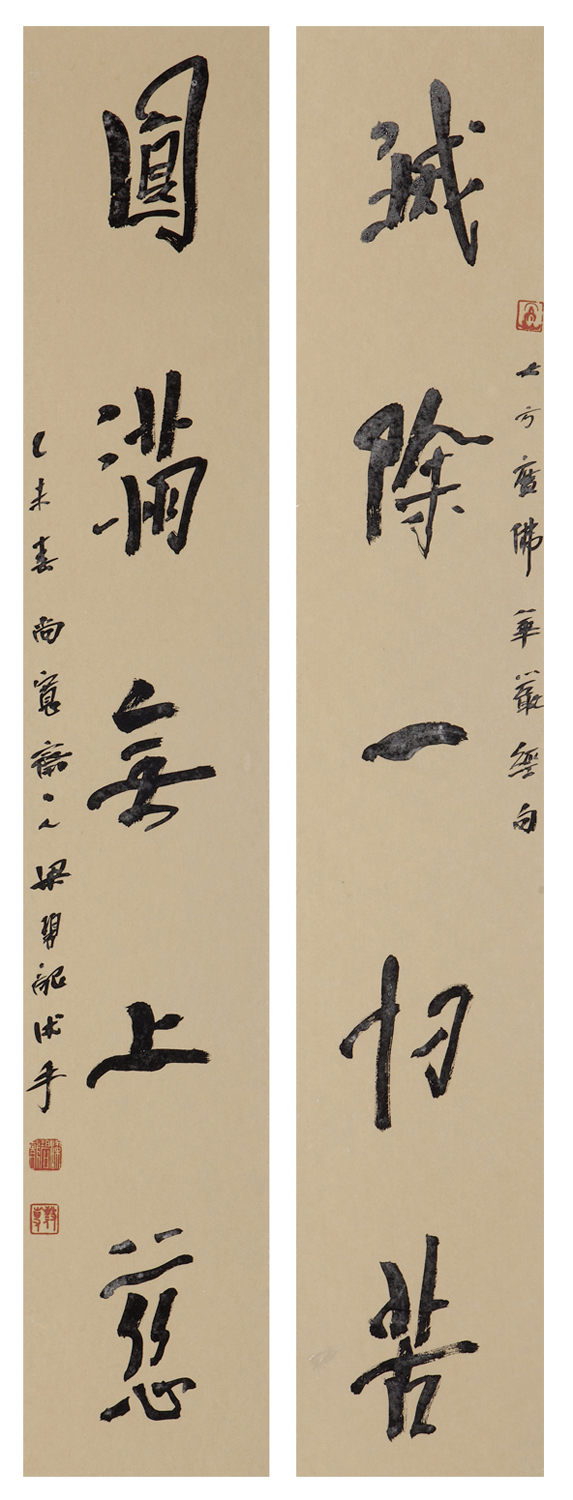 大方廣佛華嚴經句
滅除一切苦
圓滿無上慈
乙未春尚寬齋主人梁沐手